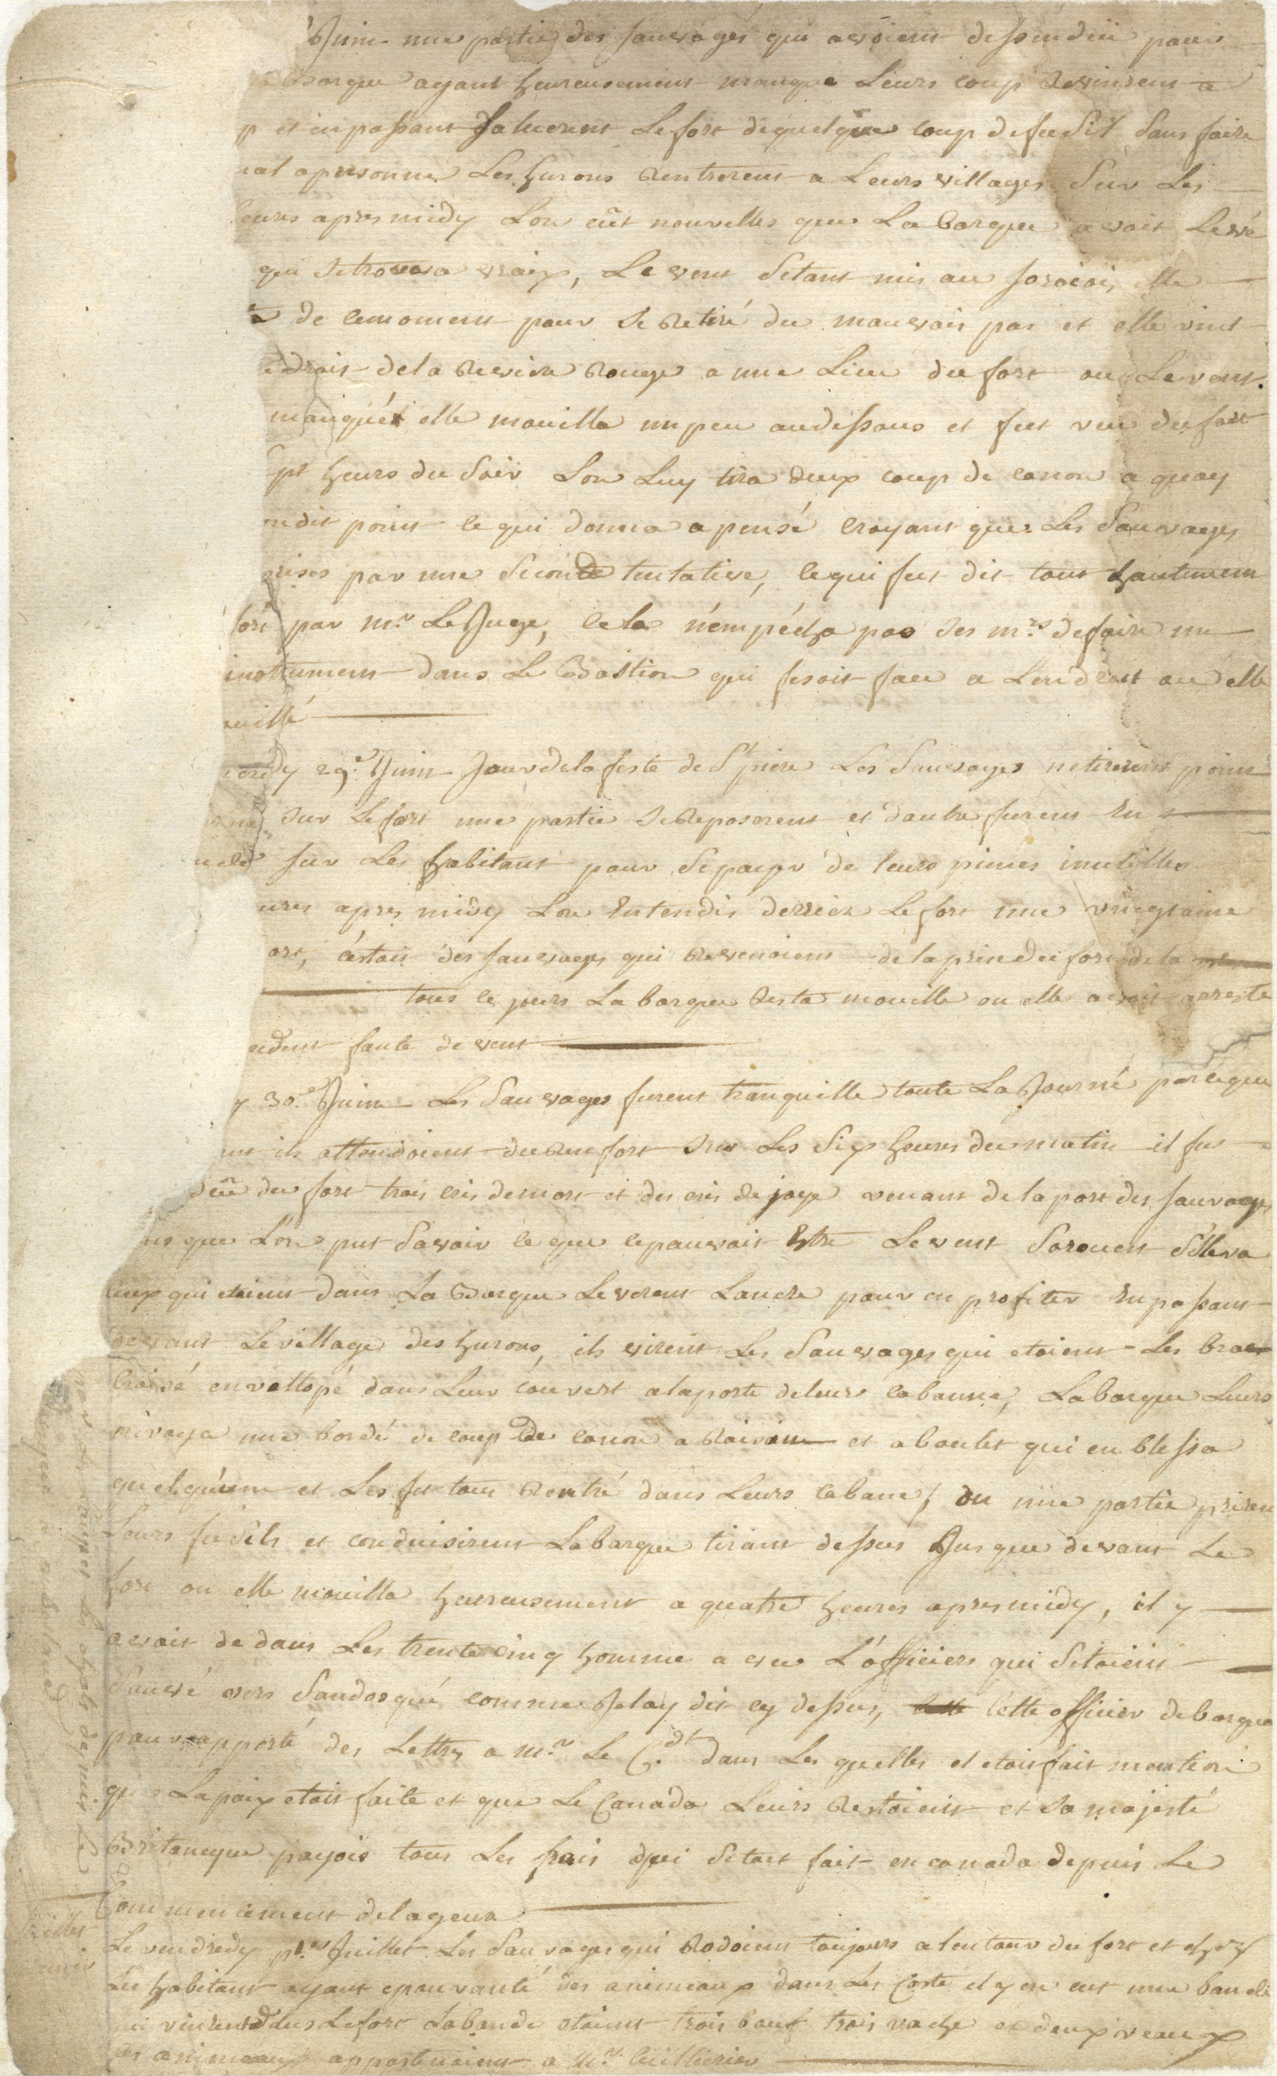 Juin une partie des sauvages qui avoient dessendüe pour
Barque ayant heureusement manqué Leurs coup Revinrent a
p et en passant Saluerent Le fort de quelque coup de fusil Sans faire
mal a personne Les hurons Rentrerent a Leurs villages Sur Les
heures apres midy Lon eût nouvelles que La Barque avait Levé
qui Se trouva vraix, Le vent Setant mis au Soroeois elle
a de ce moment pour Se Retiré du mauvais pas et elle vint
droit de la Rivier Rouge a une Lieu du fort ou Le vent
manquét elle mouilla un peu audessous et fut veu du fort
Sept heurs du Soir Lon Luy tira deux coup de canon a quoy
ondit point ce qui donna a pensé croyant que Les Sauvages
prises par une Seconde tentative, ce qui fut dit tout hautement
fort par mr. Le Juge, cela n'empécha pas Ses mrs. de faire un
instrument dans Le Bastion qui fesoit face a Lendroit ou elle
mouillé
credy 29e. Juin Jour de la feste de St piere Les Sauvages ne tirerent point
Sur Le fort une partie Se Reposerent et dautre furent En
Sur Les habitant pour Se payer de leurs peines inutilles
eures apres midy Lon Entendit derriere Le fort une vingtaine
ort, c'estait des sauvages qui Revenoient de la prise du fort de la
tous ce jours La barque Resta mouille ou elle avoit arreste
cedent faute de vent
y 30e. Juin Les Sauvages furent tranquille toute La Journé parceque
ils attendoient du Renfort Sur Les Six heures du matin il fu
du fort trois cris de mort et des cris de joye venant de la part des Sauvages
que Lon put Savoir ce que ce pouvait Estre Le vent Sorouest S'Eleva
Ceux qui etoient dans La Barque Leverent Lancre pour en profiter En passant
devant Le village des hurons, ils virent Les Sauvages qui etoient Les bras
croisé envellopé dans Leur couvert a la porte de leurs cabanne, La barque Leurs
envoya une bordé de coup de canon a Raisin et a boulet qui en blessa
quelquéun et Les fit tous Rentré dans Leurs cabane, ou une partie priren
Leurs fusils et conduisirent La barque tirant dessus Jusque devant Le
fort ou elle mouilla heureusement a quatre heures apres midy, il y
avoit de dans Les trente cinq homme avec L'officiers qui Setoient
Sauvé vers Sandosqué comme Je lay dit cy dessus, Cette officier debarqua
pour apporté des Lettres a mr. Le Cdt. dans Les quelles il etoit fait mention
que La paix etoit faite et que Le Canada Leurs Restoient et Sa majesté
Britaneque payois tous Les frais qui Setoit fait en canada depuis Le
Commencement de la guerre
Le vendredy pr. Juillet Les Sauvages qui Rodoient toujours alentour du fort et chez
Les habitant ayant epouvanté des animeaux dans Les Coste il y en eut une bande
qui vinrent dans Le fort La bande etoient trois bœuf trois vache et deux veaux
Les animeaux appartenoient a Mr. Cuillierier